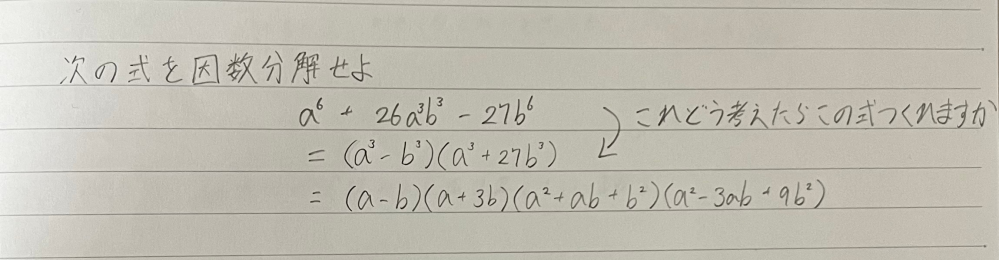 次の式を因数分解せよ
a⁶ + 26a³b³ - 27b⁶ これどう考えたらこの式つくれますか
= (a³ - b³)(a³ + 27b³)
= (a - b)(a + 3b)(a² + ab + b²)(a² - 3ab + 9b²)